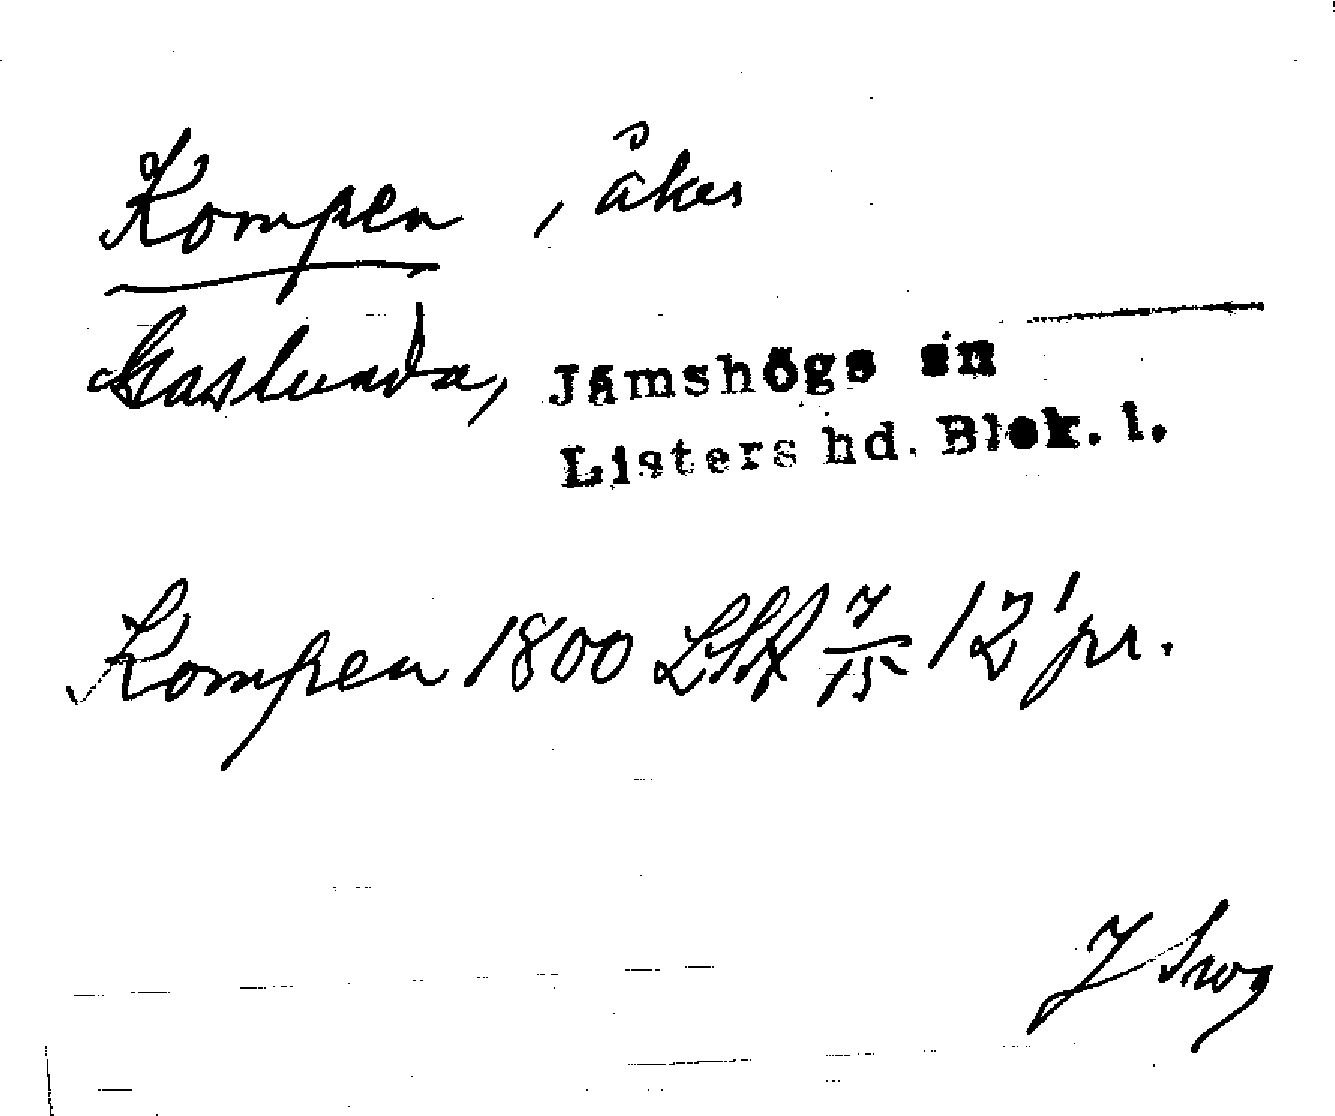 Kompen, åker
Gaslunda, Jämshögs sn
Listers hd. Blek. l.
Kompen 1800 LSA 7/15 12 pr.